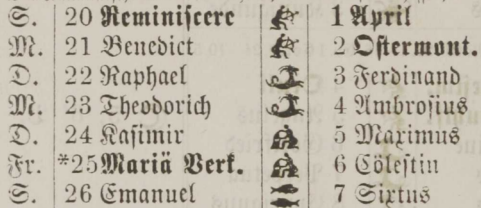 S. 20 Reminiscere 1 April
M. 21 Benedict 2 Ostermont.
D. 22 Raphael 3 Ferdinand
M. 23 Theodorich 4 Ambrosius
D. 24 Kasimir 5 Maximus
Fr. *25 Mariä Verk. 6 Cölestin
S. 26 Emanuel 7 Sixtus